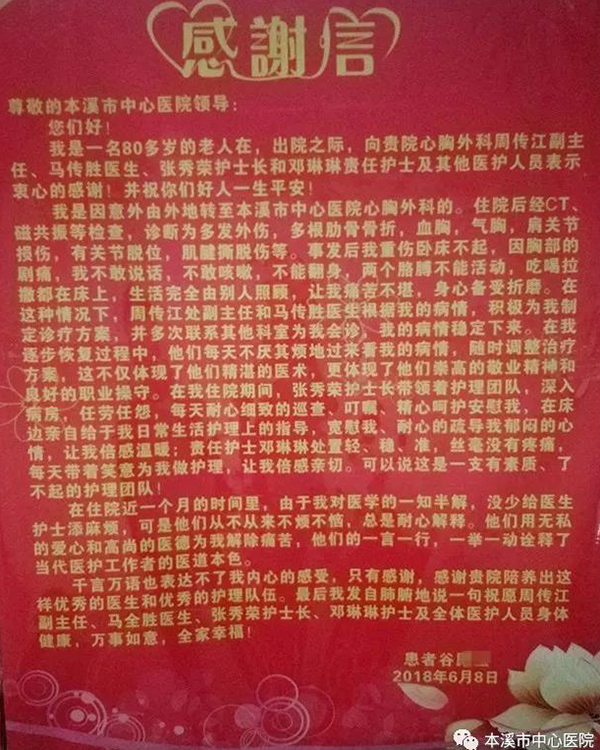 感謝信
尊敬的本溪市中心医院领导：
您们好！
我是一名80多岁的老人在，出院之际，向贵院心胸外科周传江副主
任、马传胜医生、张秀荣护士长和邓琳琳责任护士及其他医护人员表示
衷心的感谢！并祝你们好人一生平安！
我是因意外由外地转至本溪市中心医院心胸外科的。住院后经CT、
磁共振等检查，诊断为多发外伤，多根肋骨骨折，血胸，气胸，肩关节
损伤，有关节脱位，肌腱撕脱伤等。事发后我重伤卧床不起，因胸部的
剧痛，我不敢说话，不敢咳嗽，不能翻身，两个胳膊不能活动，吃喝拉
撒都在床上，生活完全由别人照顾，让我痛苦不堪，身心备受折磨。在
这种情况下，周传江处副主任和马传胜医生根据我的病情，积极为我制
定诊疗方案，并多次联系其他科室为我会诊，我的病情稳定下来。在我
逐步恢复过程中，他们每天不厌其烦地过来看我的病情，随时调整治疗
方案，这不仅体现了他们精湛的医术，更体现了他们崇高的敬业精神和
良好的职业操守。在我住院期间，张秀荣护士长带领着护理团队，深入
病房，任劳任怨，每天耐心细致的巡查、叮嘱，精心呵护安慰我，在床
边亲自给于我日常生活护理上的指导，宽慰我、耐心的疏导我郁闷的心
情，让我倍感温暖；责任护士邓琳琳处置轻、稳、准，丝毫没有疼痛，
每天带着笑意为我做护理，让我倍感亲切。可以说这是一支有素质、了
不起的护理团队！
在住院近一个月的时间里，由于我对医学的一知半解，没少给医生
护士添麻烦，可是他们从不从来不烦不恼，总是耐心解释。他们用无私
的爱心和高尚的医德为我解除痛苦，他们的一言一行，一举一动诠释了
当代医护工作者的医道本色。
千言万语也表达不了我内心的感受，只有感谢，感谢贵院陪养出这
样优秀的医生和优秀的护理队伍。最后我发自肺腑地说一句祝愿周传江
副主任、马全胜医生、张秀荣护士长、邓琳琳护士及全体医护人员身体
健康，万事如意，全家幸福！
患者谷
2018年6月8日
本溪市中心医院